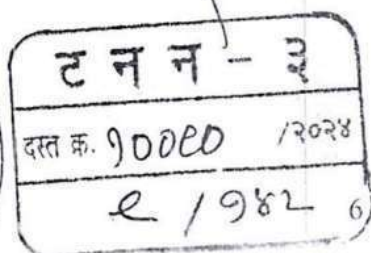 ट न न - ३
दस्त क्र. १००९० /२०२४
९ / १४२ 6